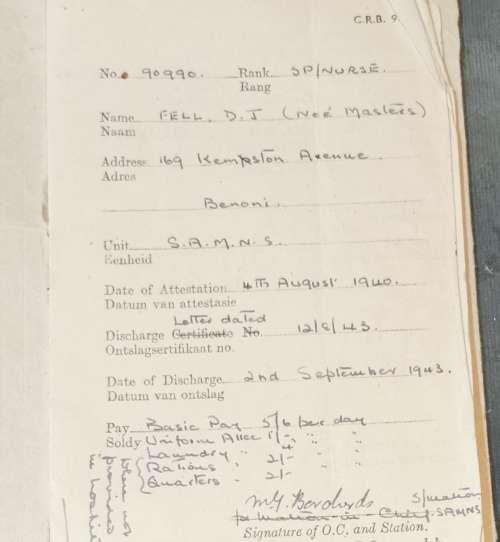 C.R.B. 9.
No. 90990. Rank SP/NURSE.
Rang
Name FELL. D.J (Neé Masters)
Naam
Address 169 Kempston Avenue.
Adres
Benoni.
Unit S.A.M.N.S.
Eenheid
Date of Attestation 4TH August 1940.
Datum van attestasie
Letter dated
Discharge Certificate No. 12/8/43.
Ontslagsertifikaat no.
Date of Discharge 2nd September 1943.
Datum van ontslag
Pay Basic Pay 5/6 per day
Soldy Uniform Allce 1/- " "
Laundry " 4 " "
Rations " 2/- " "
Quarters " 2/- " "
when not
provided
in
S/Matron
for Matron-in-Chief SAMNS
Signature of O.C. and Station.